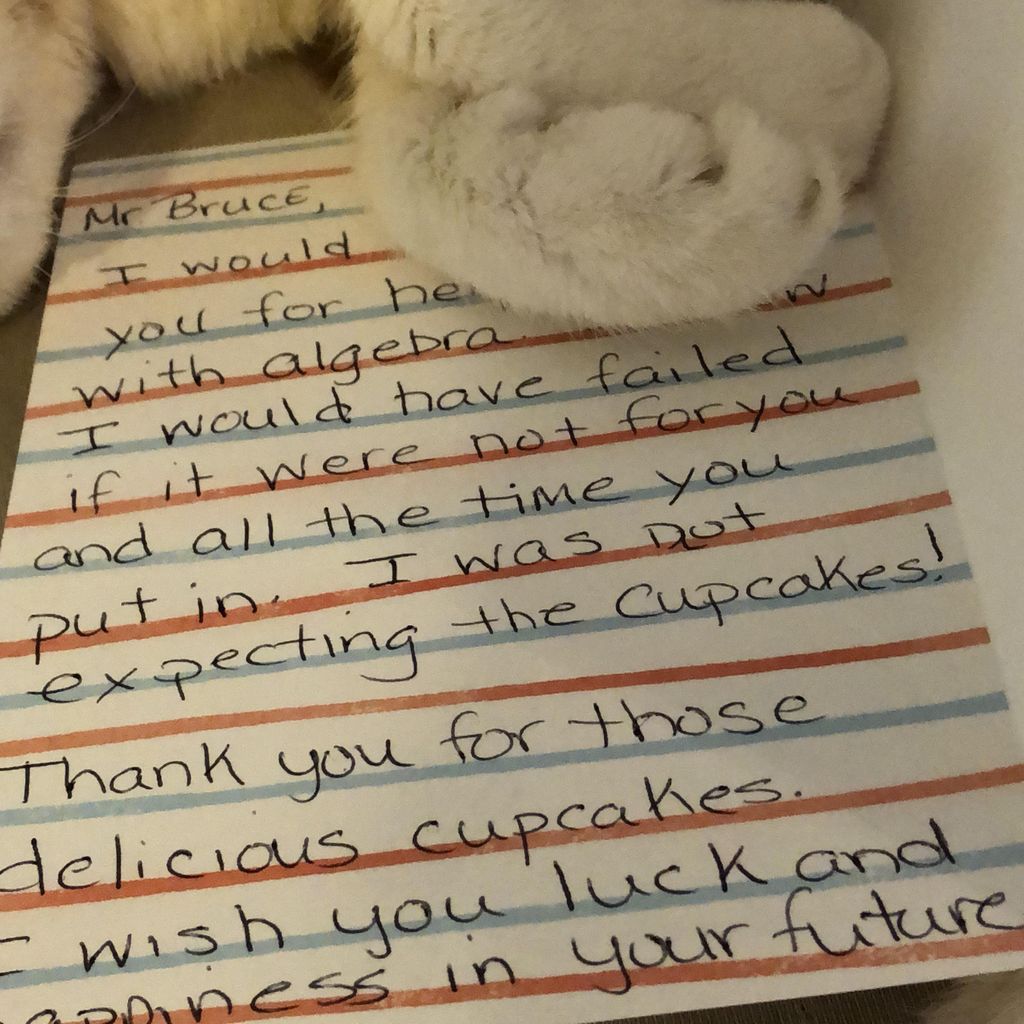 Mr Bruce,
I would
you for he
with algebra. w
I would have failed
if it were not for you
and all the time you
put in. I was not
expecting the cupcakes!
Thank you for those
delicious cupcakes.
I wish you luck and
happiness in your future